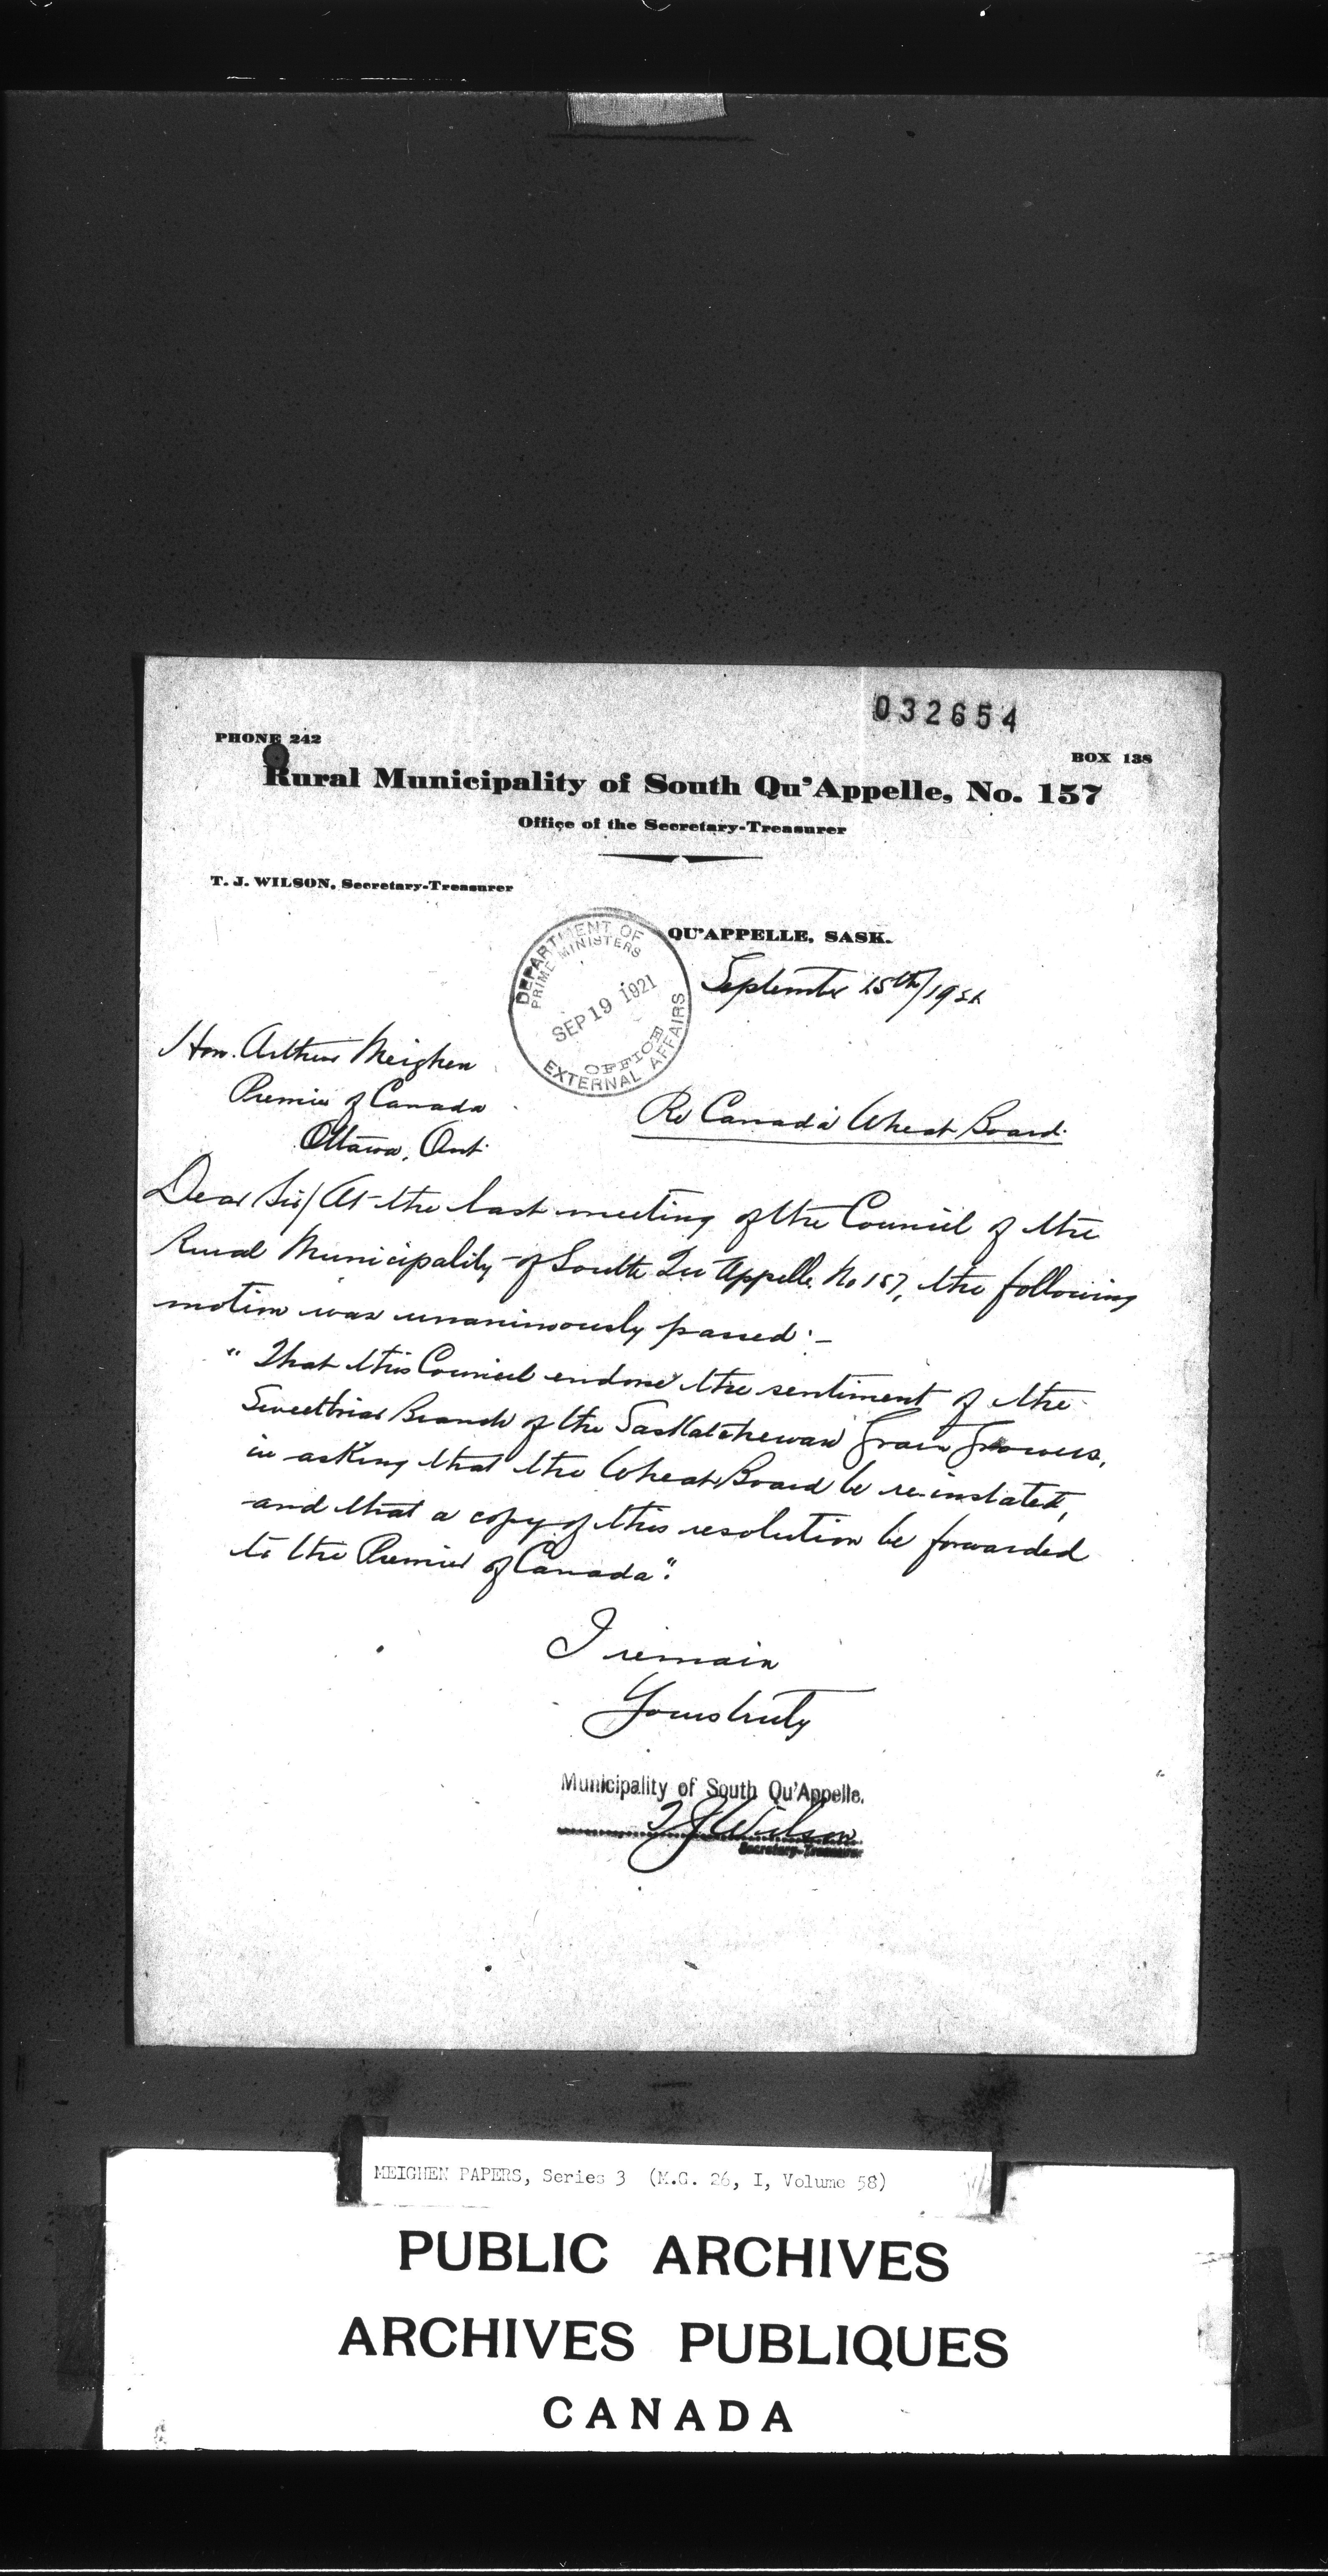 032654
PHONE 242
BOX 138
Rural Municipality of South Qu'Appelle, No. 157
Office of the Secretary-Treasurer
T. J. WILSON, Secretary-Treasurer
QU'APPELLE, SASK.
September 15th/1921
DEPARTMENT OF EXTERNAL AFFAIRS
PRIME MINISTERS OFFICE
SEP 19 1921
Hon. Arthur Meighen
Premier of Canada
Ottawa, Ont.
Re Canada Wheat Board.
Dear Sir/ At the last meeting of the Council of the
Rural Municipality of South Qu'Appelle No 157, the following
motion was unanimously passed:-
"That this Council endorse the sentiment of the
Sweetbriar Branch of the Saskatchewan Grain Growers,
in asking that the Wheat Board be re-instated,
and that a copy of this resolution be forwarded
to the Premier of Canada".
I remain
Yours truly
Municipality of South Qu'Appelle.
T J Wilson
Secretary-Treasurer
MEIGHEN PAPERS, Series 3 (M.G. 26, I, Volume 58)
PUBLIC ARCHIVES
ARCHIVES PUBLIQUES
CANADA